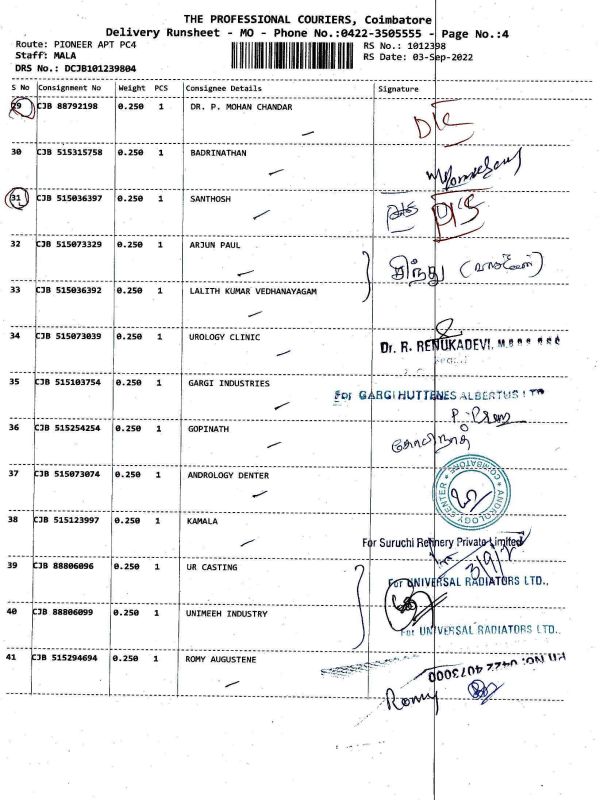 THE PROFESSIONAL COURIERS, Coimbatore
Delivery Runsheet - MO - Phone No.:0422-3505555 - Page No.:4
Route: PIONEER APT PC4
RS No.: 1012398
Staff: MALA
RS Date: 03-Sep-2022
DRS No.: DCJB101239804
S No Consignment No Weight PCS Consignee Details Signature
29 CJB 88792198 0.250 1 DR. P. MOHAN CHANDAR
30 CJB 515315758 0.250 1 BADRINATHAN
31 CJB 515036397 0.250 1 SANTHOSH
32 CJB 515073329 0.250 1 ARJUN PAUL
33 CJB 515036392 0.250 1 LALITH KUMAR VEDHANAYAGAM
34 CJB 515073039 0.250 1 UROLOGY CLINIC Dr. R. RENUKADEVI,
35 CJB 515103754 0.250 1 GARGI INDUSTRIES For GARGI HUTTENES ALBERTUS LTD
36 CJB 515254254 0.250 1 GOPINATH கோபிநாத்
37 CJB 515073074 0.250 1 ANDROLOGY DENTER ANDROLOGY CENTER * COIMBATORE *
38 CJB 515123997 0.250 1 KAMALA For Suruchi Refinery Private Limited
39 CJB 88806096 0.250 1 UR CASTING For UNIVERSAL RADIATORS LTD.,
40 CJB 88806099 0.250 1 UNIMEEH INDUSTRY For UNIVERSAL RADIATORS LTD.,
41 CJB 515294694 0.250 1 ROMY AUGUSTENE PH NO: 0422 4073000
Romy